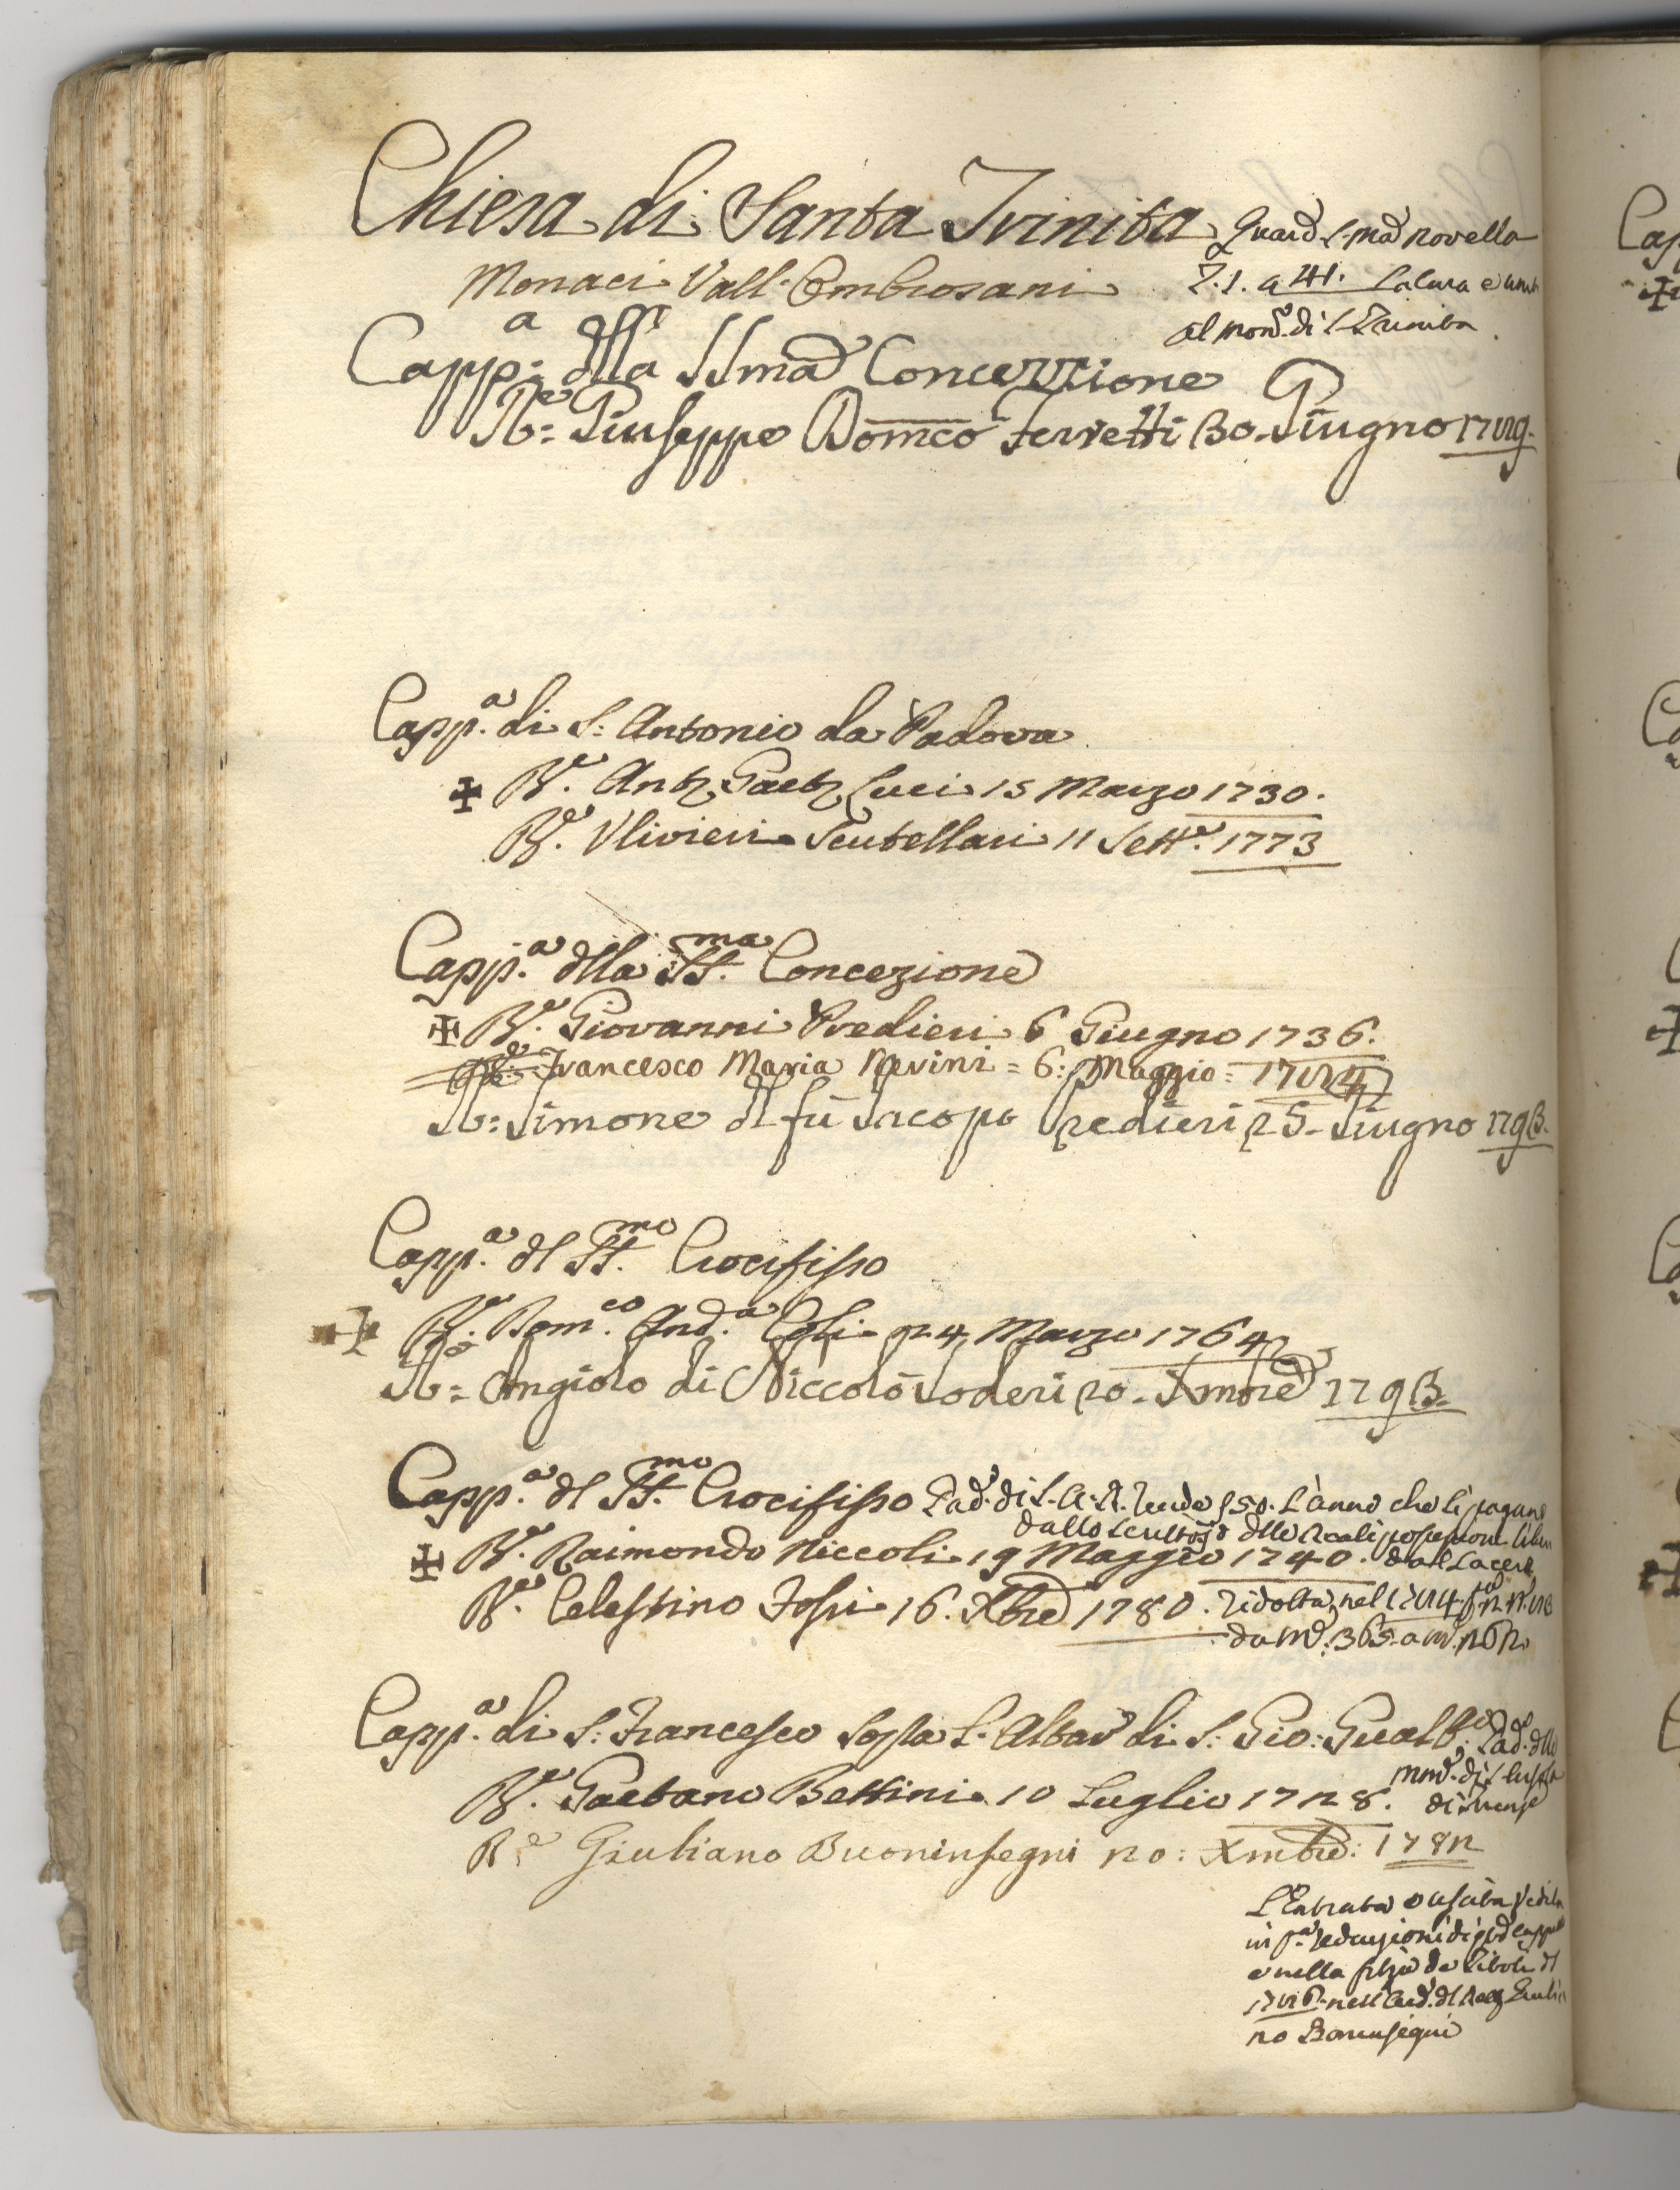 Chiesa di Santa Trinita
Quard. S. Ma Novella
Monaci Vall-Ombrosani
T. 1. a 41. La Cura è unita
al mon.o di S. Trinita
Capp.a dlla SSma Concezzione
Re: Giuseppe Domco Ferretti 30. Giugno
Capp.a di S: Antonio da Padova
✠ Re. Ant.o Gaet.o Luci 15 Marzo 1730.
Re. Ulivieri Scutellari 11 Sett.e 1773
Capp.a dlla SS.ma Concezione
✠ Re. Giovanni Predieri 6 Giugno 1736.
Re: Francesco Maria Nevini = 6: Maggio =
Re: Simone dl fù Jacopo Predieri 25. Giugno 1793.
Capp.a dl SS.mo Crocifisso
✠ Re. Dom.co And.a Cgli 24 Marzo 1764
Re: Angiolo di Niccolò Soderi 20. Xmbre 1793.
Capp.a dl SS.mo Crocifisso Pad. di S. A. R. Rende 50. l'anno che li pagano
dallo Scrittojo dlle Reali possessioni
✠ Re. Raimondo Niccoli 19 Maggio 1740.
Re. Celestino Fossi 16. Xbre 1780. ridotta nel
da m. 365. a m.
Capp.a di S: Francesco sotto l'Altar di S: Gio: Gualb.o Pad. dlle
Re. Gaetano Bettini 10 Luglio 1728.
di Firenze
Re Giuliano Buoninsegni 20: Xmbre: 1782
L'Entrata e uscita vedila
in riduzioni di
e nella filza de
nell dl Giulia
no Boninsegni